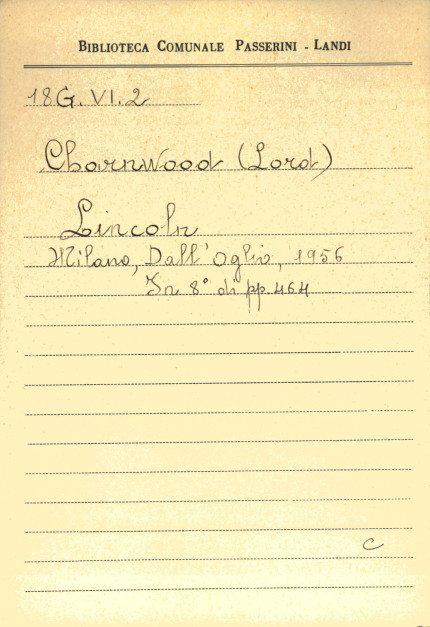 BIBLIOTECA COMUNALE PASSERINI - LANDI
18G.VI.2
Charnwood (Lord)
Lincoln
Milano, Dall'Oglio, 1956
In 8° di pp. 464
C